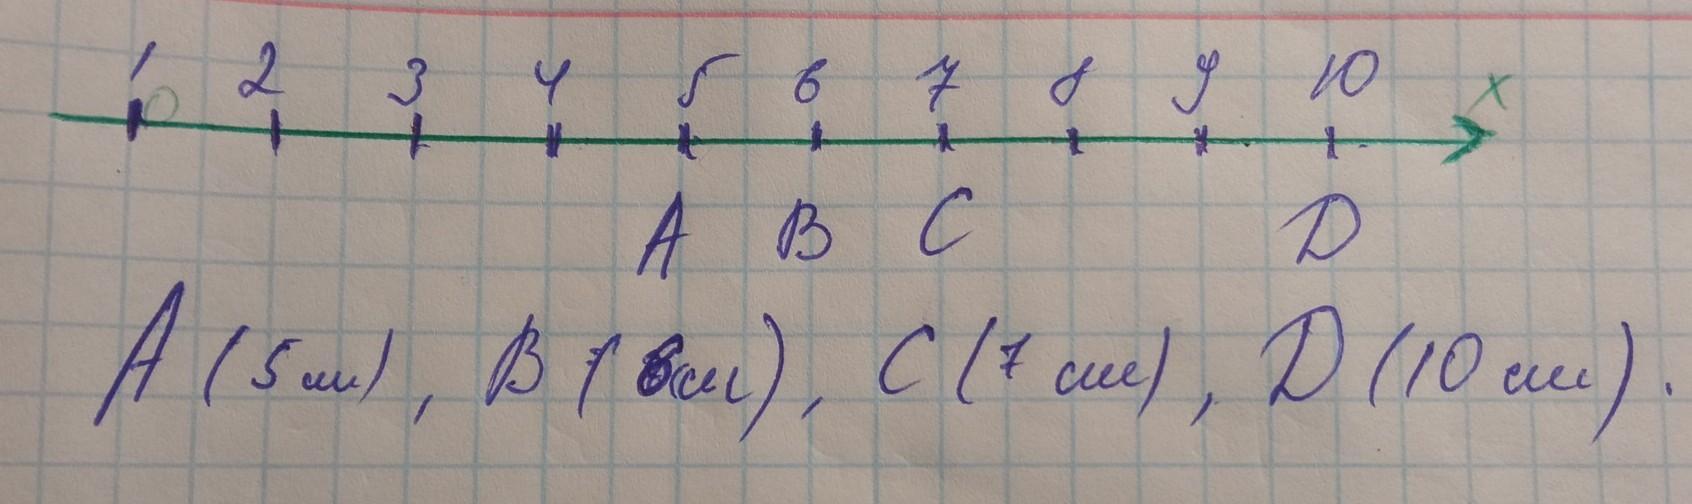 1 2 3 4 5 6 7 8 9 10 x
0
A B C D
A (5 см), B (6 см), C (7 см), D (10 см).